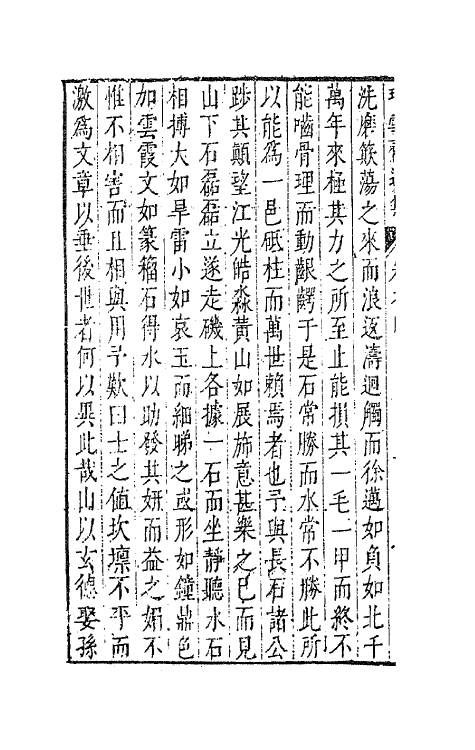 洗磨簸蕩之來而浪返濤迴觸而徐邁如負如北千
萬年來極其力之所至止能損其一毛一甲而終不
能嚙骨理而動齦齶于是石常勝而水常不勝此所
以能為一邑砥柱而萬世賴焉者也予與長石諸公
踄其顛望江光皓淼黃山如展斾意甚樂之已而見
山下石磊磊立遂走磯上各據一石而坐靜聽水石
相搏大如旱雷小如哀玉而細睇之或形如鐘鼎色
加雲霞文如篆籀石得水以助發其妍而益之媚不
惟不相害而且相與用予歎曰士之值坎壈不平而
激為文章以垂後世者何以異此哉山以玄德娶孫